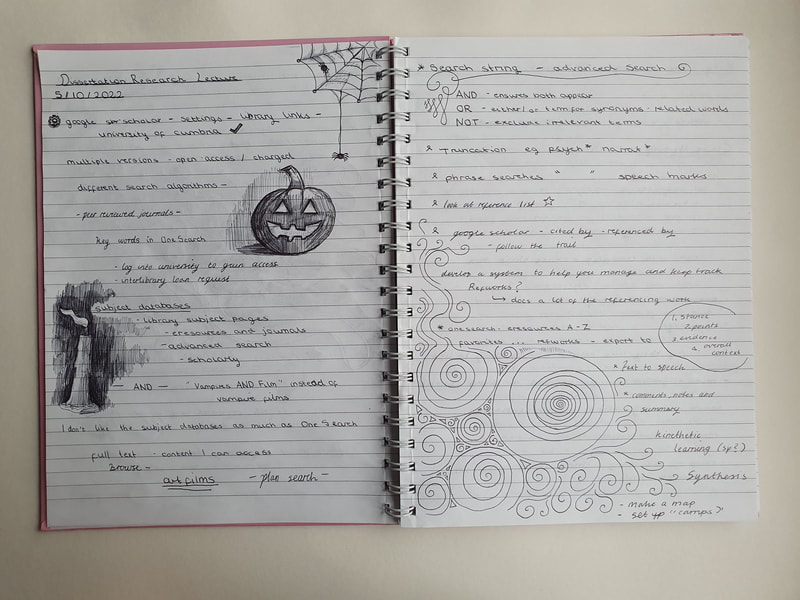 Dissertation Research Lecture
5/10/2022
google scholar - settings - library links -
university of cumbria ✓
multiple versions - open access / charged
different search algorithms -
- peer reviewed journals -
Key words in One Search
- log into university to gain access
- interlibrary loan request
subject databases
- library subject pages
- eresources and journals
- advanced search
- scholarly
— AND — "Vampires AND Film" instead of
vampire films
I don't like the subject databases as much as One Search
full text - content I can access
Browse -
art films - plan search -
* Search string - advanced search
AND - ensures both appear
OR - either/or term for synonyms - related words
NOT - exclude irrelevant terms
& Truncation eg psych* narrat*
& phrase searches " " speech marks
& look at reference list ☆
& google scholar - cited by - referenced by
- follow the trail
develop a system to help you manage and keep track
Refworks?
↳ does a lot of the referencing work
* onesearch - eresources A-Z
favorites ... refworks - export to
1. stance
2. points
3. evidence
4. overall
context
* Text to speech
* comments, notes and
summary
kinethetic
learning (sp?)
Synthesis
- make a map
- set up "camps"